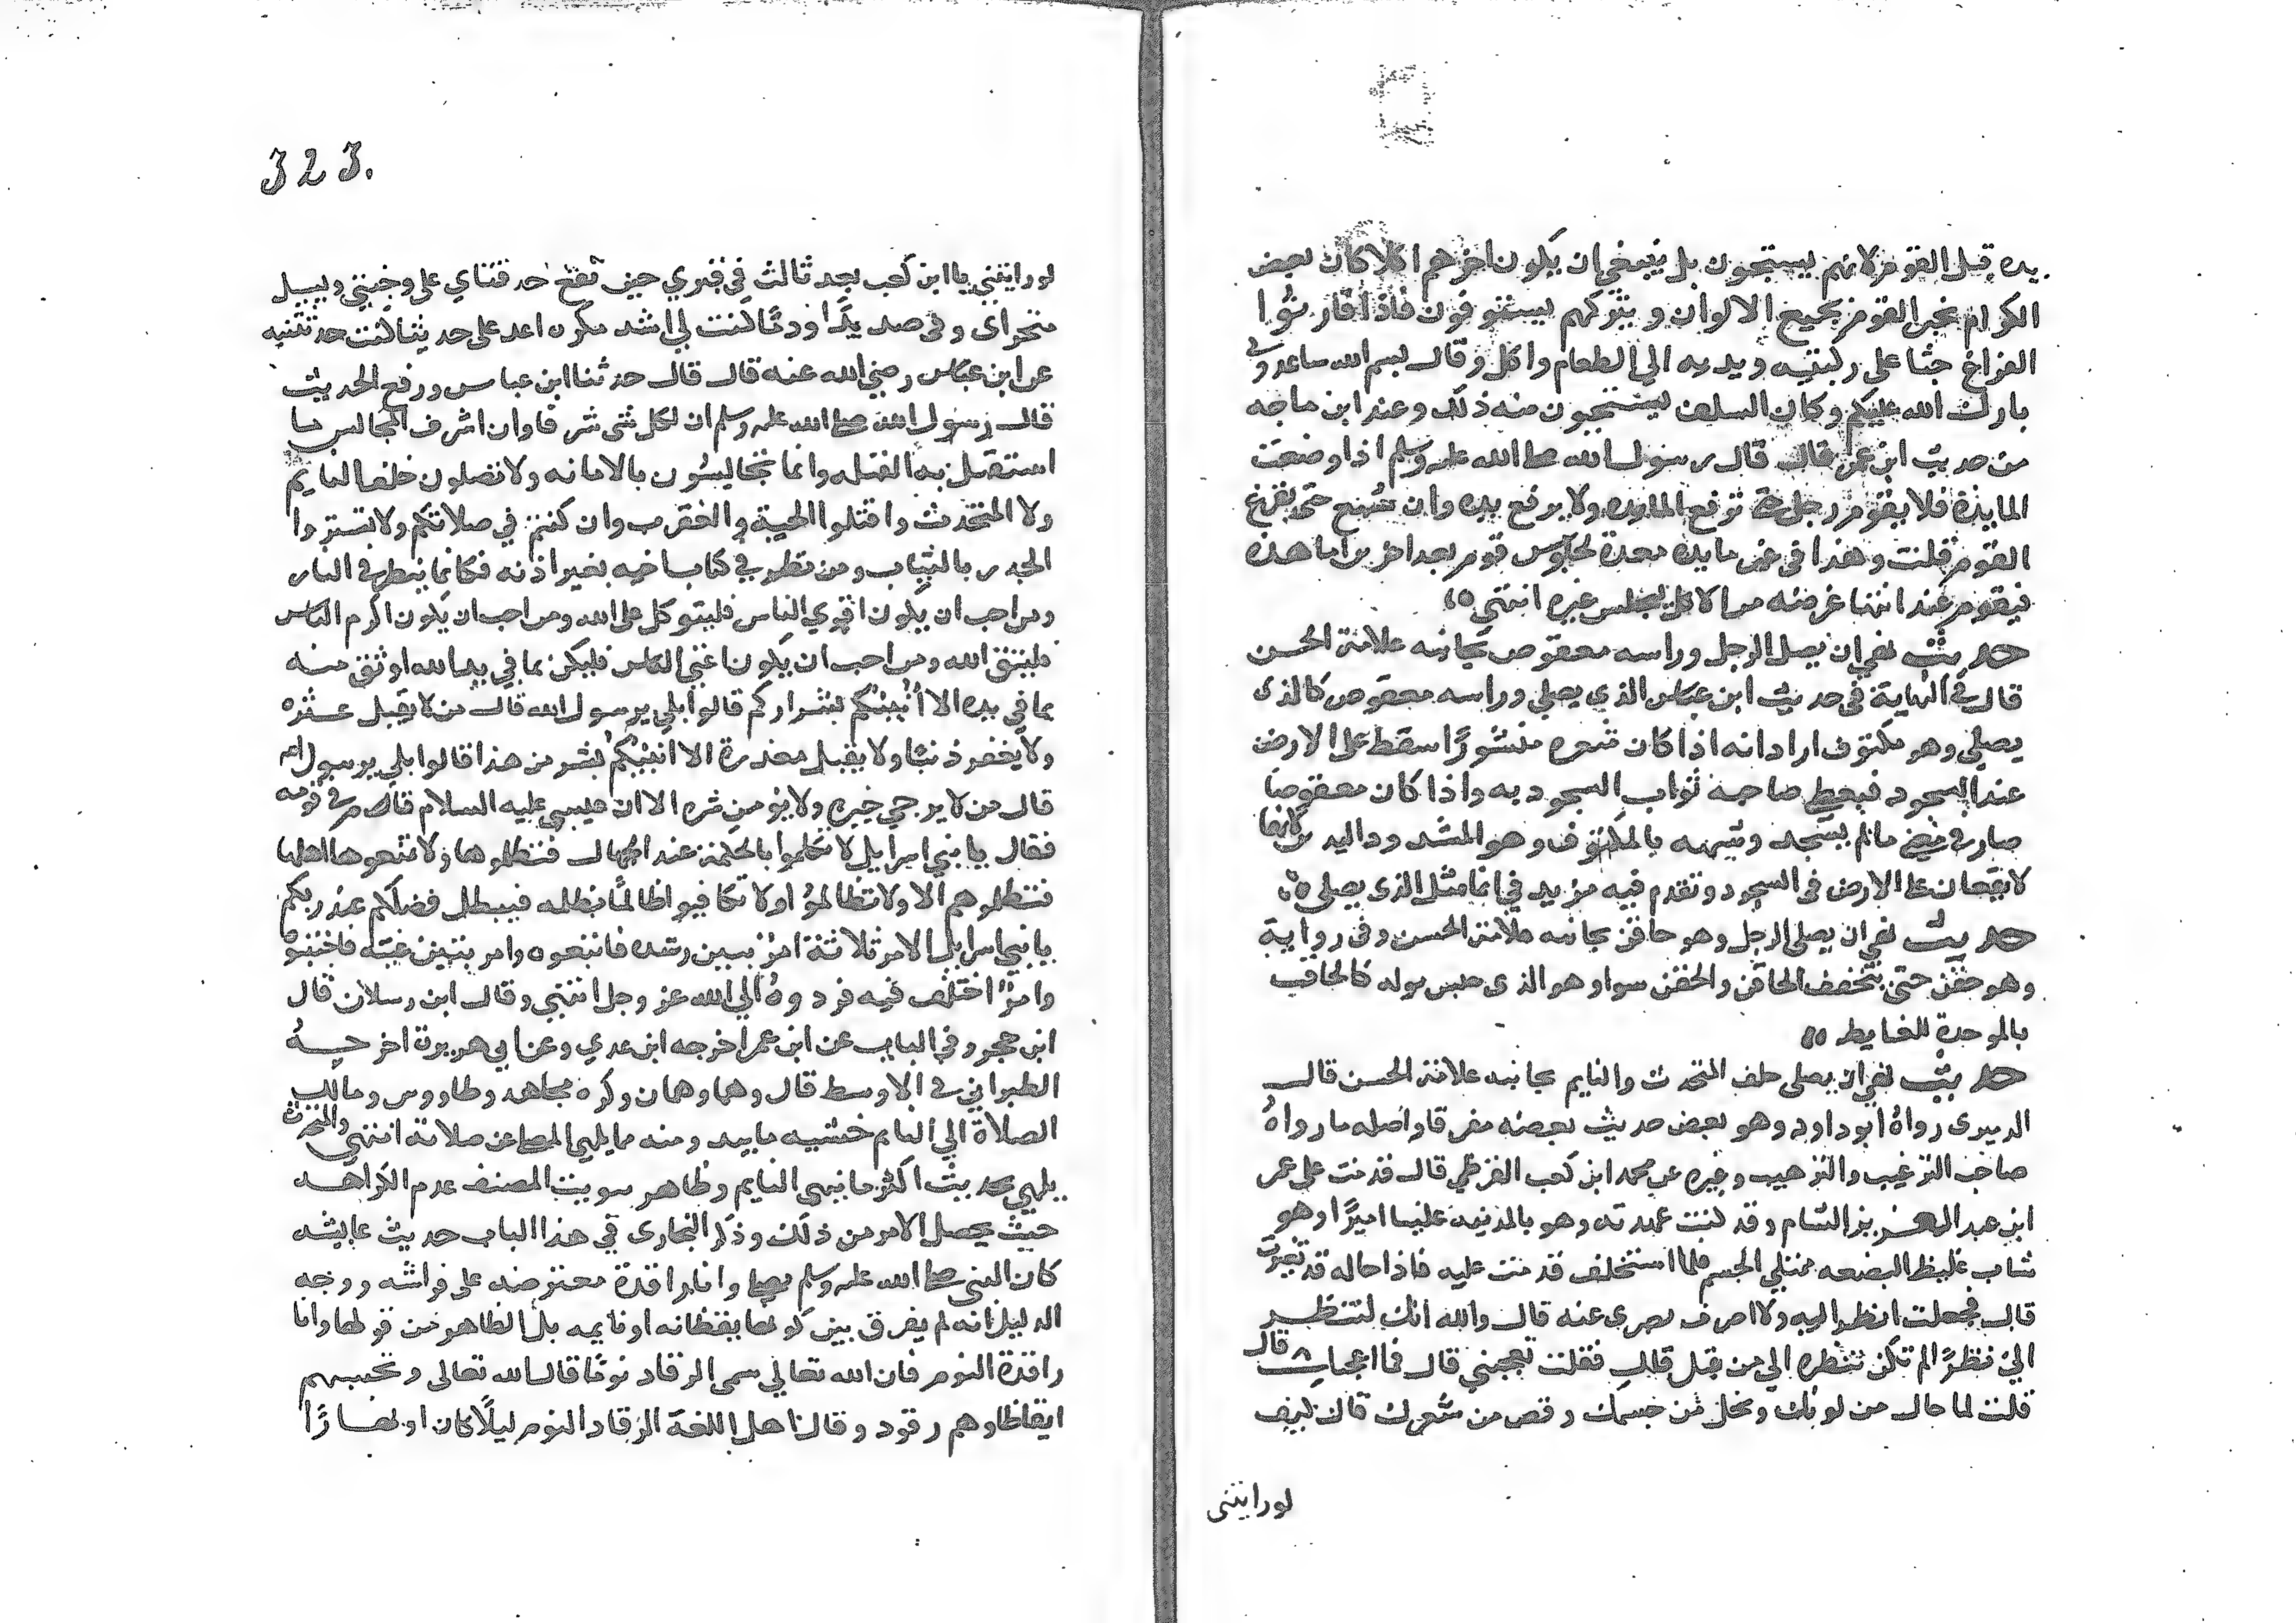 يده قبل القوم لانهم يستحيون بل ينبغي ان يكون اخرهم اكلا كان بعض
الكرام يخبر القوم بجميع الالوان و يتركهم يستوفون فاذا قاربوا
الفراغ جثا على ركبتيه ويديه الى الطعام واكل وقال بسم الله ساعدوني
بارك الله عليكم وكان السلف يستحبون منه ذلك وعند ابن ماجه
من حديث ابن عمر قال قال رسول الله صلى الله عليه وسلم اذا وضعت
المايدة فلا يقوم رجل حتى ترفع المايده ولا يرفع يده وان شبع حتى يفرغ
القوم قلت وهذا في غير مايده معدة لجلوس قوم بعد اخرين اما هذه
فيقوم عند انتها غرضه من الاكل ليجلس غيره انتهى
حديث نهي ان يصلي الرجل وراسه معقوص بجانبه علامة الحسن
قال في النهاية في حديث ابن عباس الذي يصلي وراسه معقوص كالذي
يصلي وهو مكتوف اراد انه اذا كان شعره منشورًا سقط على الارض
عند السجود فيعطى صاحبه ثواب السجود به واذا كان معقوصا
صار في معنى ما لم يسجد وشبهه بالمكتوف وهو المشدود اليدين لانهما
لا يقعان على الارض في السجود وتقدم فيه مزيد في انما مثل الذي يصلي
حديث نهي ان يصلي الرجل وهو حاقن بجانبه علامة الحسن وفي رواية
وهو حقن حتى يتخفف الحاقن والحقن سوا وهو الذي حبس بوله كالحاقب
بالموحدة للغايط
حديث نهي ان يصلي خلف المتحدث والنايم بجانبه علامة الحسن قال
الدميري رواه ابو داود وهو بعض حديث بعضه مفرقا واصله ما رواه
صاحب الترغيب والترهيب وغيره عن محمد ابن كعب القرظي قال قدمت على عمر
ابن عبد العزيز بالشام وقد كنت عهدته وهو بالمدينه علينا اميرًا وهو
شاب غليظ البضعه ممتلي الجسم فلما استخلف قدمت عليه فاذا حاله قد تغيرت
قال فجعلت انظر اليه ولا اصرف بصري عنه قال والله انك لتنظر
الي نظرًا لم تكن تنظره الي من قبل قال فقلت تعجبني قال فما اعجبك قال
قلت لما حال من لونك ونحل من جسمك ونقص من شعرك قال كيف
لو رايتني
323.
لو رايتني يا ابن كعب بعد ثالث في قبري حين تقع حدقتاي على وجنتي ويسيل
منخراي وفمي صديدًا ودمًا كنت لي اشد نكره اعد علي حديثا كنت حدثتنيه
عن ابن عباس رضي الله عنه قال قال حدثنا ابن عباس ورفع الحديث
قال رسول الله صلى الله عليه وسلم ان لكل شي شرفا وان اشرف المجالس ما
استقبل به القبله وانما تجالسون بالامانه ولا تصلون خلف النايم
ولا المتحدث واقتلوا الحية والعقرب وان كنتم في صلاتكم ولا تستروا
الجدر بالثياب ومن نظر في كتاب اخيه بغير اذنه فكانما ينظر في النار
ومن احب ان يكون اقوي الناس فليتوكل على الله ومن احب ان يكون اكرم الناس
فليتق الله ومن احب ان يكون اغني الناس فليكن بما في يد الله اوثق منه
بما في يده الا انبئكم بشراركم قالوا بلي يرسول الله قال من لا يقبل عثره
ولا يغفر ذنبا ولا يقبل معذرة الا انبئكم بشر من هذا قالوا بلي يرسول الله
قال من لا يرجي خيره ولا يؤمن شره الا ان عيسى عليه السلام قام في قومه
فقال يا بني اسرايل لا تتكلموا بالحكمة عند الجهال فتظلموها ولا تمنعوها اهلها
فتظلموهم الا ولا تظالموا ولا تكافيوا ظالمًا بظلمه فيبطل فضلكم عند ربكم
يا بني اسرايل الامر ثلاثة امر تبين رشده فاتبعوه وامر تبين غيه فاجتنبوه
وامرٌ اختلف فيه فردوه الي الله عز وجل انتهي وقال ابن رسلان قال
ابن حجر وفي الباب عن ابن عمر اخرجه ابن عدي وعن ابي هريرة اخرجه
الطبراني في الاوسط قال وهما وهمان وكره مجاهد وطاووس ومالك
الصلاة الي النايم خشيه ما يبد ومنه مما يلهي المصلي عن صلاته انتهى والمتحدث
يلهي بحديث اكثر ما نهى النايم وظاهر تبويب المصنف عدم الكراهه
حيث يحصل الامر من ذلك وذكر البخاري في هذا الباب حديث عايشه
كان النبي صلى الله عليه وسلم يصلي وانا راقدة معترضه على فراشه ووجه
الدليل انه لم يفرق بين كونها يقظانه او نايمه بل الظاهر من قولها وانا
راقدة النوم فان الله تعالي سمى الرقاد نومًا قال الله تعالى وتحسبهم
ايقاظا وهم رقود وقال اهل اللغة الرقاد النوم ليلًا كان او نهارًا